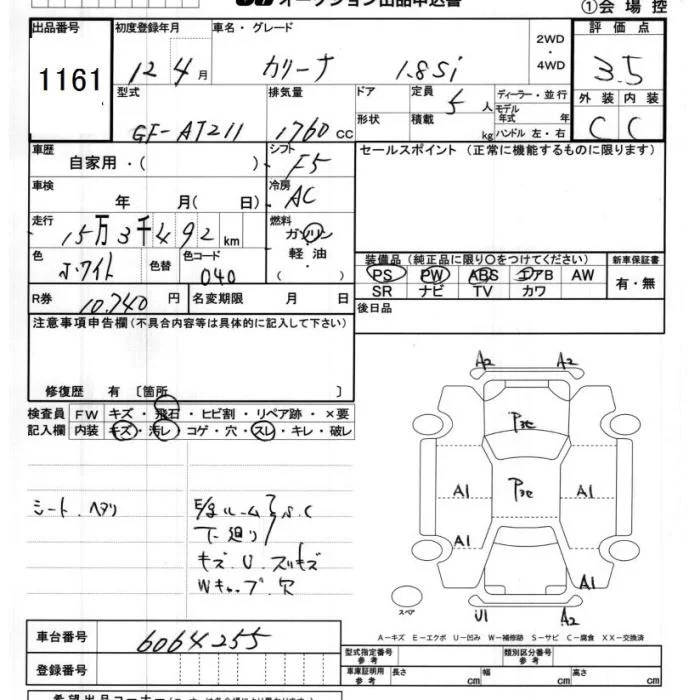 オークション出品申込書
①会場控
出品番号 初度登録年月 車名・グレード 2WD・4WD 評価点
1161 12年4月 カリーナ 1.8Si 3.5
型式 排気量 ドア 定員 5人 ディーラー・並行 外装 内装
GF-AT211 1760cc 形状 積載 kg モデル年式 年 ハンドル 左・右 C C
車歴 自家用・( ) シフト F5 セールスポイント (正常に機能するものに限ります)
車検 年 月( 日) 冷房 AC
走行 15万3千492km 燃料 ガソリン
軽油
( )
色 ホワイト 色替 色コード 040
装備品 (純正品に限り〇をつけてください) 新車保証書
PS PW ABS エアB AW 有・無
SR ナビ TV カワ
R券 10,740円 名変期限 月 日
後日品
注意事項申告欄(不具合内容等は具体的に記入して下さい)
修復歴 有 〔箇所 〕
検査員 FW キズ・飛石・ヒビ割・リペア跡・×要
記入欄 内装 キズ・汚レ・コゲ・穴・スレ・キレ・破レ
シート・ヘタリ
E/gルーム S.C
下廻り
キズ・U・スリキズ
Wキャップ・穴
A2 A2
A1 A1
A1
A1
U1 A2
スペア
A-キズ E-エクボ U-凹み W-補修跡 S-サビ C-腐食 XX-交換済
車台番号 6064255
登録番号
型式指定番号 参考 類別区分番号 参考
車庫証明用 参考 長さ cm 幅 cm 高さ cm
希望出品コーナー